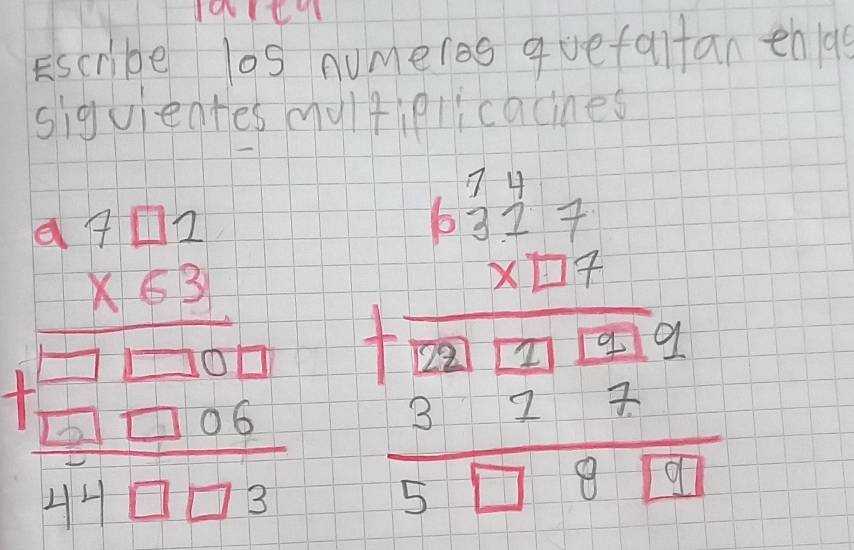 Tarea
Escribe los numeros que faltan en las
siguientes multiplicacines
a 7□1
x 63
□□0□
+ □□06
44□□3
1 4
b 317
x □7
+ 22 1 9 9
3 1 7
5 □ 8 9